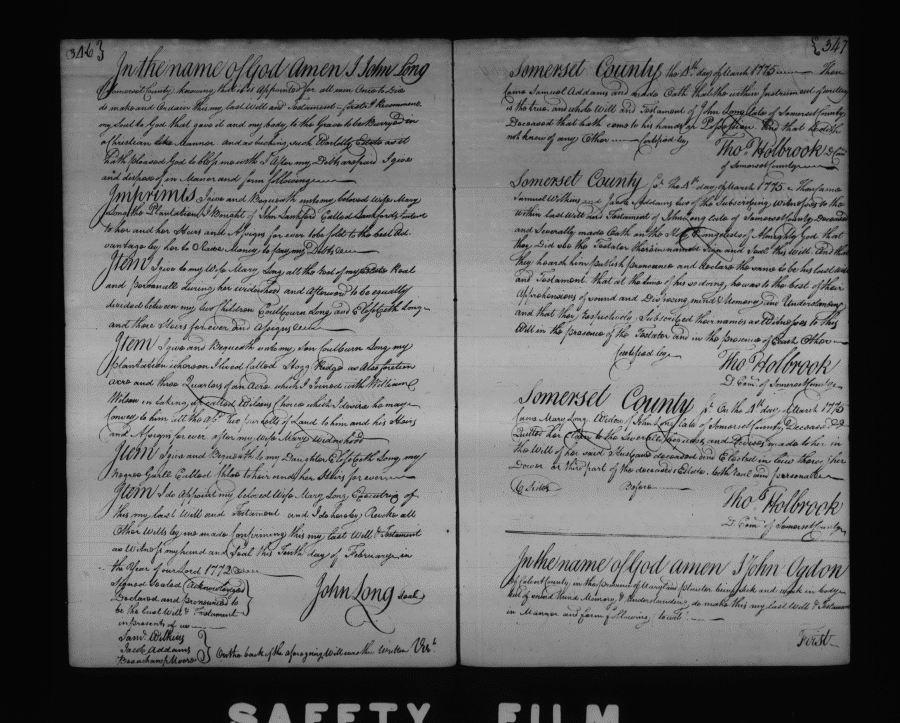 346}
In the name of God Amen I John Long
Somerset County knowing that it is Appointed for all men Once to Die
do make and Ordain this my last Will and Testament first I Recommend
my Soul to God that gave it and my body to the Grave to be Burryed in
a Christian like Manner and as touching such Worldly Estate as it
hath pleased God to bless me with I after my Debts are paid I give
and dispose of in Manner and form following
Imprimis I give and Bequeath unto my beloved Wife Mary
Long the Plantation I Bought of John Lankford Called Lankfords
to her and her Heirs and Assigns for ever to be sold to the best Ad
vantage by her to Raise Money to pay my Debts
Item I give to my Wife Mary Long all the Rest of my Estate Real
and personall during her widowhood and Afterward to be equally
devided between my two Children Coulbourn Long and Elisebeth Long
and there Heirs for ever and Assigns
Item I give and Bequeath unto my Son Coulburn Long my
plantation whereon I lived Called Hogg Ridge as Also fourteen
acre and three Quarters of an Acre which I Joined with William
Wilson in taking up called Wilsons Choice which I desire he may
Convey to him all the afd. Two parcells of Land to him and his Heirs
and Assigns for ever after my Wife Mary Widowhood
Item I give and Bequeath to my Daughter Elisebeth Long my
Negroe Garll Called to her and her Heirs for ever
Item I do Appoint my beloved Wife Mary Long Executrix of
this my last Will and Testament and I do hereby Revoke all
Other Wills by me made Confirming this my last Will & Testament
as Witness my hand and Seal this Tenth day of February in
the Year of our Lord 1772
Signed Sealed Acknowledged
Declared and pronounced to
be the last Will & Testament
in presents of us
John Long Seal
Saml. Wilkins
Jacob Addams
Beauchamp Moore
On the back of the aforegoing Will was thus Written Vizt.
{347
Somerset County the 4th. day of March 1775 Then
Came Samuel Addams and made Oath that the within Instrument of writing
is the true and whole Will and Testament of John Long late of Somerset County
Deceased that hath come to his hands or Possession And that he doth
not know of any Other Certified by
Thos. Holbrook D. Com.
of Somerset County
Somerset County St. the 4th. day of March 1775 Then Came
Samuel Wilkins and Jacob Addams two of the Subscribing Witnesses to the
within Last Will and Testament of John Long late of Somerset County Deceased
and Severally made Oath on the Holy Evangeles of Almighty God that
they Did see the Testator therein named Sign and Seal this Will And that
they heard him Publish pronounce and declare the same to be his last Will
and Testament that at the time of his so doing, he was to the best of their
Apprehensions of sound and Disposing mind & Memory and Understanding
and that they respectively Subscribed their names as Witnesses to this
Will in the presence of the Testator and in the presence of Each Other
Certified by
Thos. Holbrook
D. Com. of Somerset County
Somerset County St. On the 4th. day of March 1775
Came Mary Long Widow of John Long late of Somerset County Deceased &
Quitted her Claim to the Several Bequests and Devises made to her in
the Will of her said Husband deceased and Elected in lieu thereof her
Dower or third part of the deceaseds Estate both Real and personal
Before
Thos. Holbrook
D. Com. of Somerset County
In the name of God amen I John Ogdon
of Calvert County in the province of Maryland Planter being sick and weak in body
but of sound Mind Memory & Understanding do make this my last Will & Testament
in Manner and form following to wit
First
SAFETY FILM